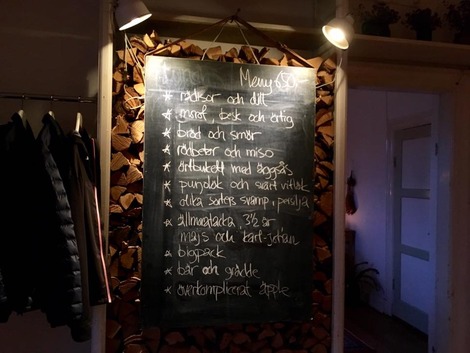 Meny 650:-
* rädisor och dill
* morot, besk och örtig
* bröd och smör
* rödbetor och miso
* örtbukett med äggsås
* purjolök och svart vitlök
* olika sorters svamp, persilja
* allmogetacka, 3½ år
majs och
* bigpack
* bär och grädde
* överkomplicerat äpple